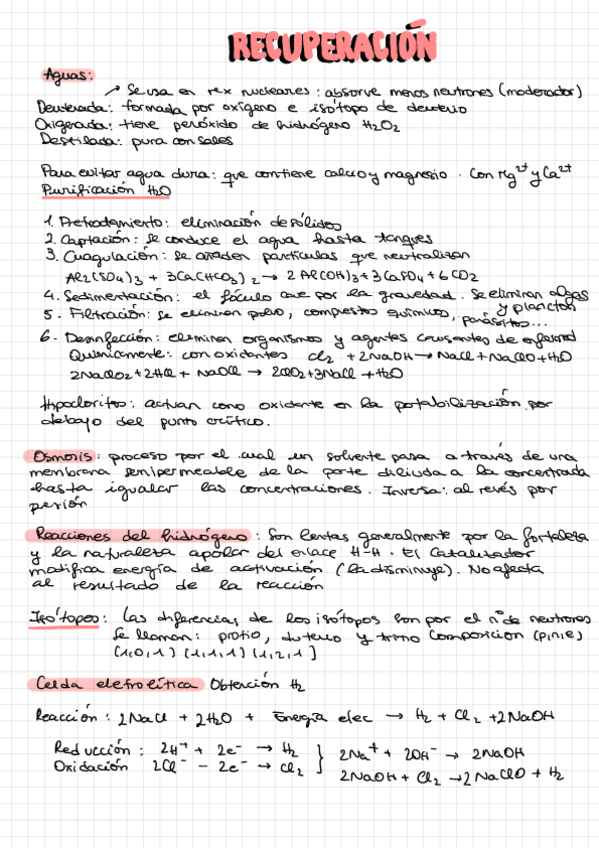 RECUPERACIÓN
Aguas:
↗ Se usa en rex nucleares : absorve menos neutrones (moderador)
Deuterada: formada por oxígeno e isótopo de deuterio
Oxigenada: tiene peróxido de hidrógeno H₂O₂
Destilada: pura con sales
Para evitar agua dura: que contiene calcio y magnesio. Con Mg²⁺ y Ca²⁺
Purificación H₂O
1. Pretratamiento: eliminación de sólidos
2. Captación: se conduce el agua hasta tanques
3. Coagulación: se añaden partículas que neutralizan
Al₂(SO₄)₃ + 3Ca(HCO₃)₂ → 2Al(OH)₃+3CaSO₄+6CO₂
4. Sedimentación: el flóculo cae por la gravedad. Se eliminan algas y plancton
5. Filtración: se eliminan polvo, compuestos químicos, parásitos...
6. Desinfección: eliminan organismos y agentes causantes de enfermed
Químicamente: con oxidantes Cl₂ + 2NaOH → NaCl + NaClO + H₂O
2NaClO₂+2HCl + NaOCl → 2ClO₂+3NaCl + H₂O
Hipocloritos: actúan como oxidante en la potabilización por
debajo del punto crítico.
Osmosis: proceso por el cual un solvente pasa a través de una
membrana semipermeable de la parte diluida a la concentrada
hasta igualar las concentraciones. Inversa: al revés por
presión
Reacciones del hidrógeno: Son lentas generalmente por la fortaleza
y la naturaleza apolar del enlace H-H. El catalizador
modifica energía de activación (la disminuye). No afecta
al resultado de la reacción
Isótopos: Las diferencias de los isótopos son por el nº de neutrones
Se llaman: protio, deuterio y tritio Composicion (p,n,e)
(1,0,1) (1,1,1) (1,2,1]
Celda eletrolítica Obtención H₂
Reacción: 2NaCl + 2H₂O + Energía elec → H₂ + Cl₂ + 2NaOH
Reducción: 2H⁺ + 2e⁻ → H₂ } 2Na⁺ + 2OH⁻ → 2NaOH
Oxidación 2Cl⁻ - 2e⁻ → Cl₂ } 2NaOH + Cl₂ → 2NaClO + H₂